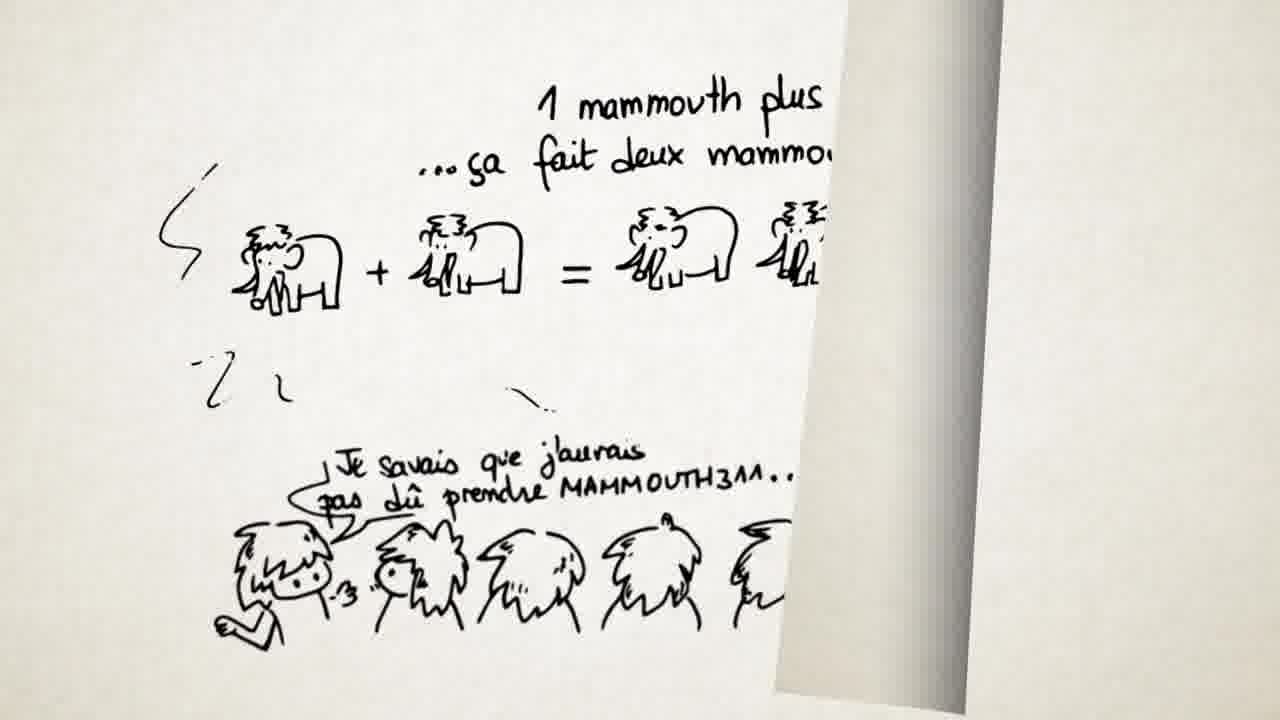 1 mammouth plus
...ça fait deux mammou
+ =
Je savais que j'aurais
pas dû prendre MAMMOUTH311...